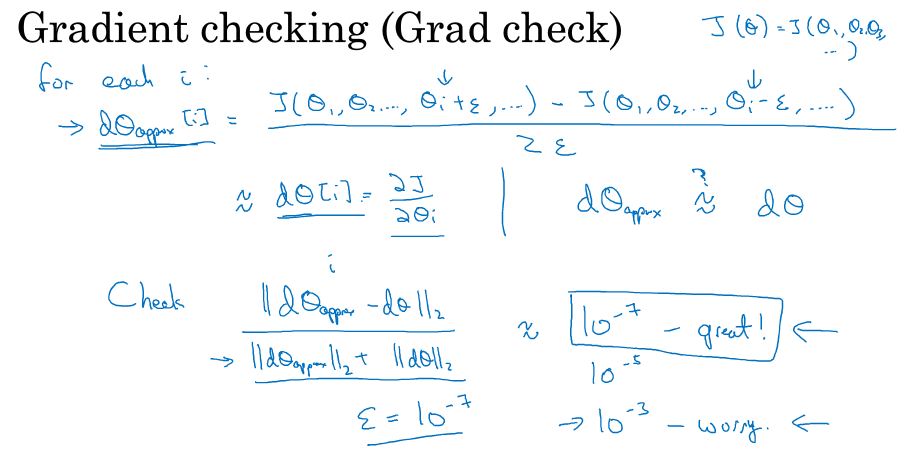 Gradient checking (Grad check)
J(θ) = J(θ₁, θ₂, θ₃, ...)
for each i:
→ dθapprox[i] = J(θ₁, θ₂, ..., θi + ε, ...) - J(θ₁, θ₂, ..., θi - ε, ...)
2ε
≈ dθ[i] = ∂J/∂θi | dθapprox ≈? dθ
i
Check ||dθapprox - dθ||₂
→ ||dθapprox||₂ + ||dθ||₂
≈ 10⁻⁷ - great! ←
10⁻⁵
ε = 10⁻⁷
→ 10⁻³ - worry. ←